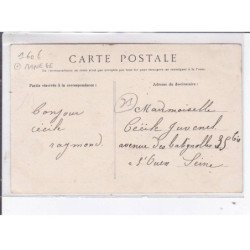 160€
MANEGE
CARTE POSTALE
La correspondance au recto n'est pas acceptée par tous les pays étrangers
Partie réservée à la correspondance :
Adresse du destinataire :
Bonjour
cécile
raymond
Mademoiselle
Cécile Juvenel
avenue des batignolles 35
à St Ouen Seine